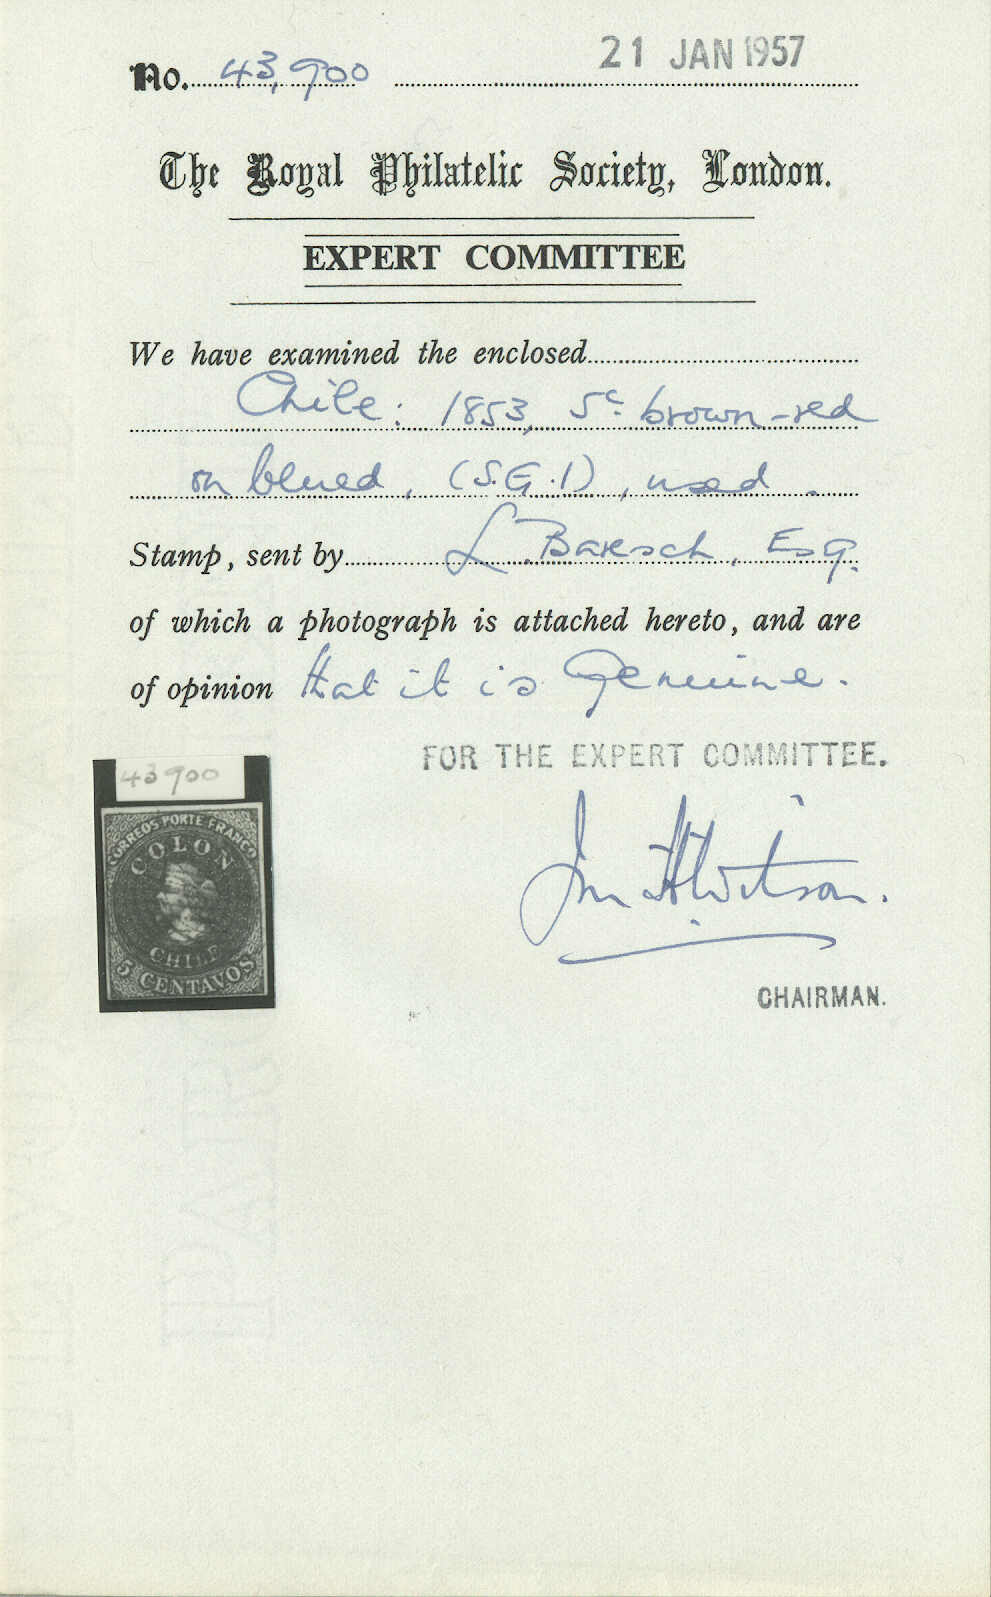 No. 43,900 21 JAN 1957
The Royal Philatelic Society, London.
EXPERT COMMITTEE
We have examined the enclosed
Chile: 1853, 5c. brown-red
on blued, (S.G.1), used.
Stamp, sent by L. Baresch, Esq.
of which a photograph is attached hereto, and are
of opinion that it is Genuine.
FOR THE EXPERT COMMITTEE.
43900
CORREOS PORTE FRANCO
COLON
CHILE
5 CENTAVOS
Jn Wilson.
CHAIRMAN.